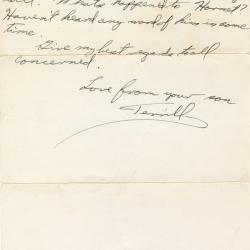 well. What's happened to Harriet?
Haven't heard any word of him in some
time.
Give my best regards to all
concerned.
Love from your son
Terrill